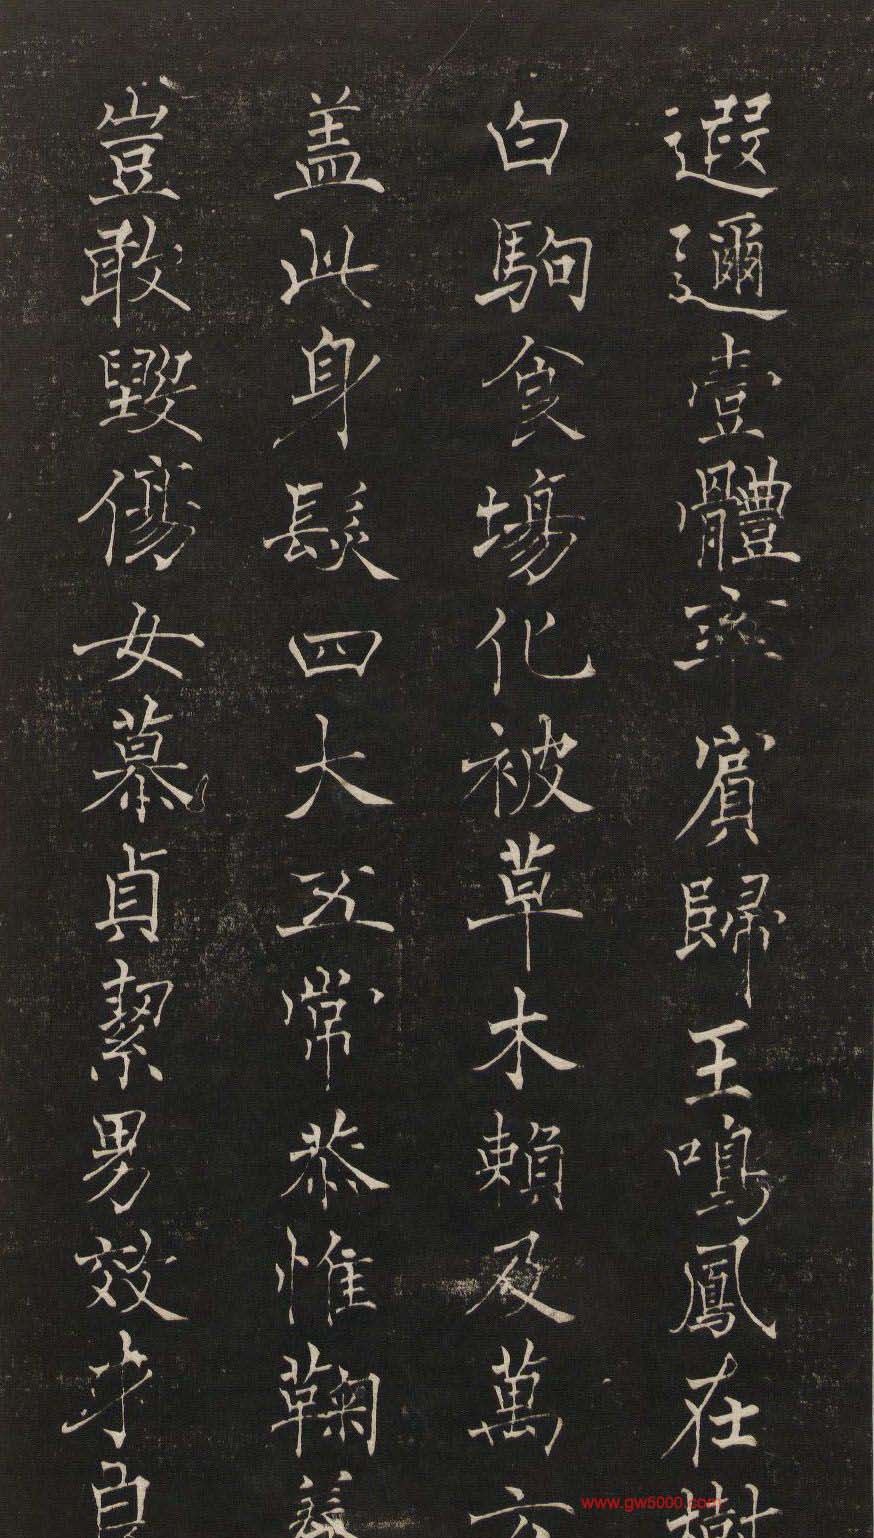 遐邇壹體率賓歸王鳴鳳在樹
白駒食場化被草木賴及萬方
盖此身髮四大五常恭惟鞠養
豈敢毀傷女慕貞絜男效才良
www.gw5000.com